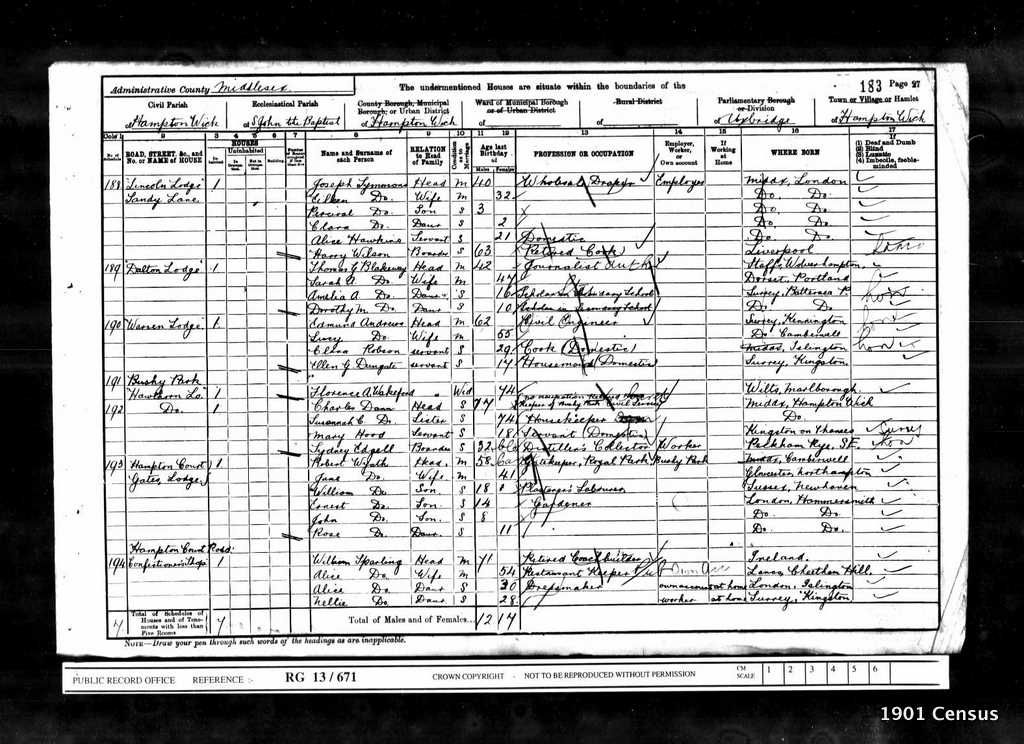 Administrative County Middlesex
The undermentioned Houses are situate within the boundaries of the
183 Page 27
Civil Parish
of Hampton Wick
Ecclesiastical Parish
of S John the Baptist
County Borough, Municipal Borough, or Urban District
of Hampton Wick
Ward of Municipal Borough or of Urban District
of
Rural District
of
Parliamentary Borough or Division
of Uxbridge
Town or Village or Hamlet
of Hampton Wick
ROAD, STREET, &c., and No. or NAME of HOUSE
HOUSES
Uninhabited
Name and Surname of each Person
RELATION to Head of Family
Age last Birthday
PROFESSION OR OCCUPATION
Employer, Worker, or Own account
If Working at Home
WHERE BORN
If (1) Deaf and Dumb (2) Blind (3) Lunatic (4) Imbecile, feeble-minded
188 "Lincoln Lodge" 1 Joseph Symmons Head M 40 Wholesale Draper Employer Middx, London
Sandy Lane Do. Wife M 32 Do. Do.
Percival Do. Son S 3 Do. Do.
Clara Do. Daur S 2 Do. Do.
Alice Hawkins Servant S 21 Domestic Do. Do.
Harry Wilson Boarder S 63 Retired Cook Liverpool
189 "Dalton Lodge" 1 Thomas G Blakeway Head M 42 Journalist Auth Staffs, Wolverhampton
Sarah A. Do. Wife M 47 Dorset, Portland
Amelia A. Do. Daur S 16 Surrey, Battersea P.
Dorothy M. Do. Daur S 10 Do Do
190 Warren Lodge 1 Edmund Andrews Head M 62 Civil Engineer Surrey, Kennington
Lucy Do. Wife M 55 Do Camberwell
Robson servant S 29 Cook (Domestic) Middx, Islington
Ellen G Dungate servant S 14 Housemaid (Domestic) Surrey, Kingston
191 Bushy Park
Hawthorn Lo. 1 Florence A. Wakeford Wid 44 no occupation Wilts, Marlborough
192 Do. 1 Charles Dann Head S 77 Keeper of Bushy Park Middx, Hampton Wick
Susannah C. Do. Sister S 74 Housekeeper Do.
Mary Hood Servant S 18 Servant (Domestic) Kingston on Thames Surrey
Sydney Edgell Boarder S 32 Distillers Collector Worker Peckham Rye, S.E.
193 Hampton Court 1 Robert Wyath Head M 58 Gatekeeper, Royal Park Bushy Park Middx, Camberwell
Gates Lodge Jane Do. Wife M 41 Gloucester, Northampton
William Do. Son S 18 Plasterer's Labourer Sussex, Newhaven
Ernest Do. Son S 14 Gardener London, Hammersmith
John Do. Son S 8 Do Do.
Rose Do. Daur S 11 Do. Do.
Hampton Court Road
194 Confectioners Shop 1 William Sparling Head M 71 Retired Coachbuilder Ireland
Alice Do. Wife M 54 Restaurant Keeper Own Acc Lancs, Cheetham Hill
Alice Do. Daur S 30 Dressmaker own account at home London, Islington
Nellie Do. Daur S 28 worker at home Surrey, Kingston
7 Total of Schedules of Houses and of Tenements with less than Five Rooms 7 Total of Males and of Females... 12 17
NOTE—Draw your pen through such words of the headings as are inapplicable.
PUBLIC RECORD OFFICE REFERENCE :- RG 13 / 671 CROWN COPYRIGHT - NOT TO BE REPRODUCED WITHOUT PERMISSION CM SCALE 1 2 3 4 5 6
1901 Census